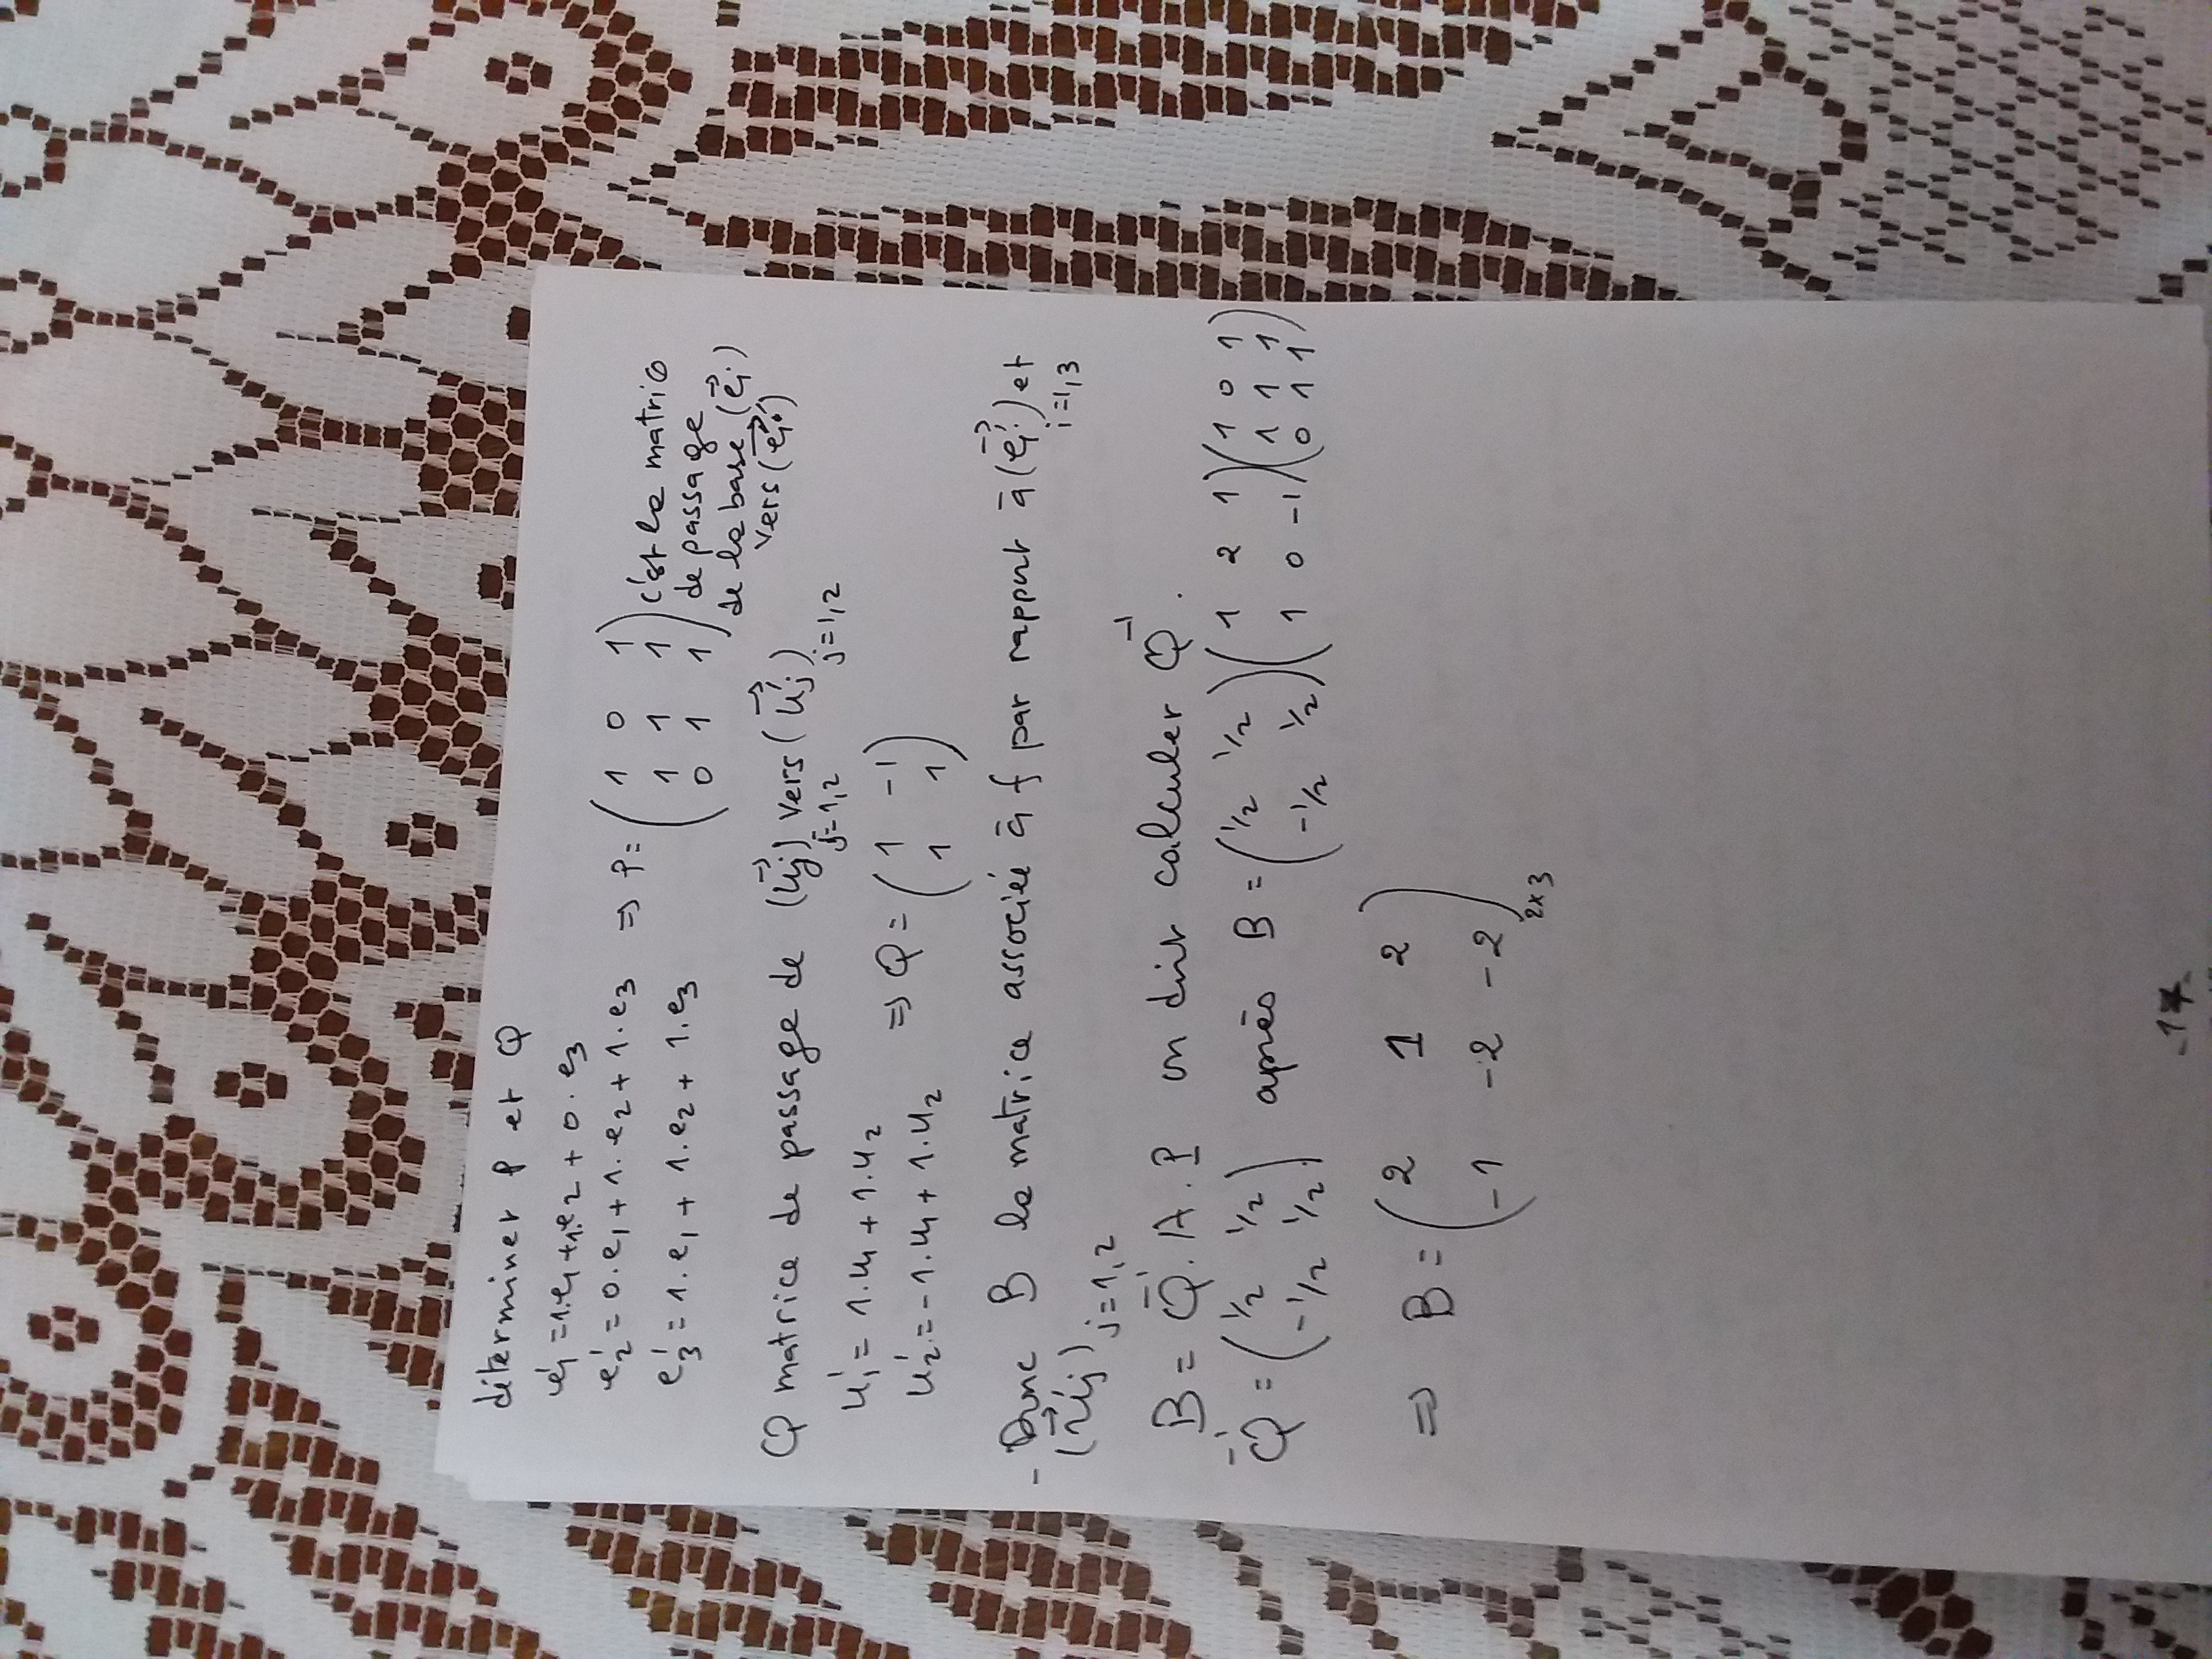 déterminer P et Q
e'1 = 1.e1 + 1.e2 + 0.e3
e'2 = 0.e1 + 1.e2 + 1.e3 => P = ( 1 0 1
e'3 = 1.e1 + 1.e2 + 1.e3 1 1 1
0 1 1 ) c'est la matrice
de passage
de la base (e⃗i)
vers (e⃗'i)
Q matrice de passage de (u⃗j) j=1,2 vers (u⃗'j) j=1,2
u'1 = 1.u1 + 1.u2
u'2 = -1.u1 + 1.u2 => Q = ( 1 -1
1 1 )
- Donc B la matrice associée à f par rapport à (e⃗'i) i=1,3 et
(u⃗'j) j=1,2
B = Q⁻¹.A.P on doit calculer Q⁻¹.
Q⁻¹ = ( 1/2 1/2
-1/2 1/2 ) après B = ( 1/2 1/2
-1/2 1/2 ) ( 1 2 1
1 0 -1 ) ( 1 0 1
1 1 1
0 1 1 )
=> B = ( 2 1 2
-1 -2 -2 ) 2x3
-17-